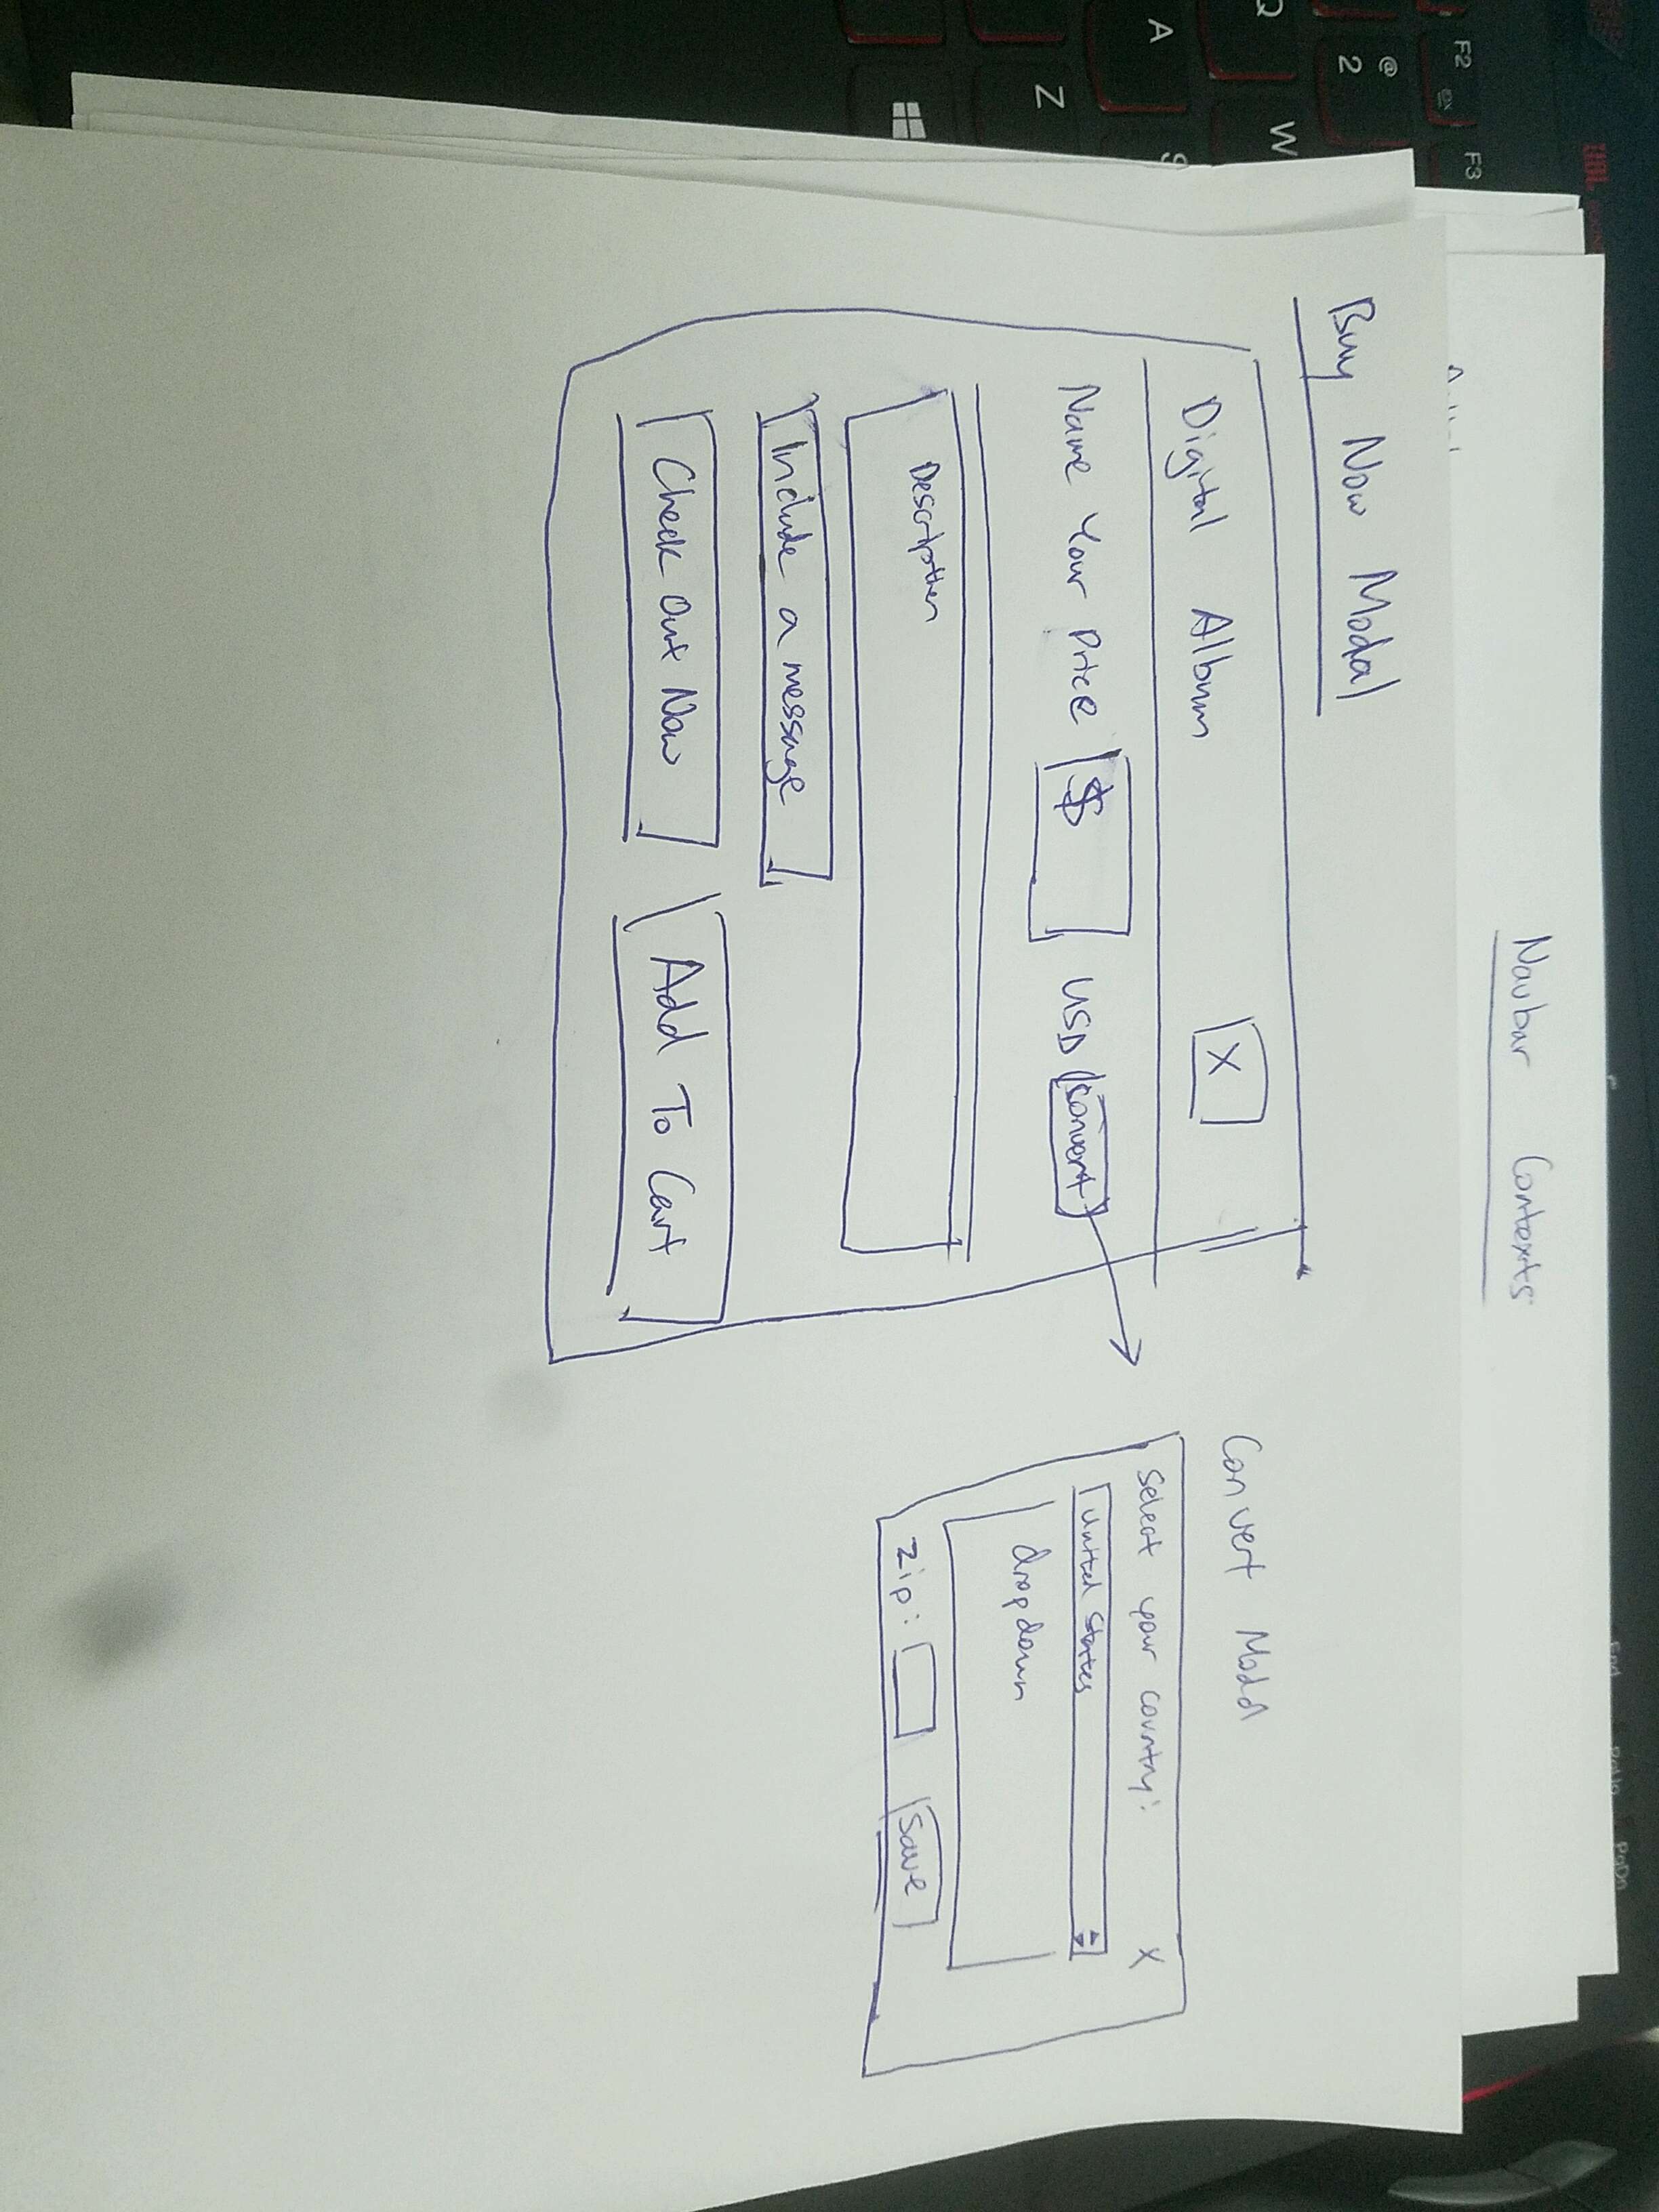 Navbar Contexts
Buy Now Modal
Digital Album X
Name Your Price $ USD (convert)
Description
Include a message
Check Out Now Add To Cart
Convert Modal
Select your country: X
United States
dropdown
Zip: Save
F2 F3
@ 2
Q W
A
Z
End PgUp PgDn